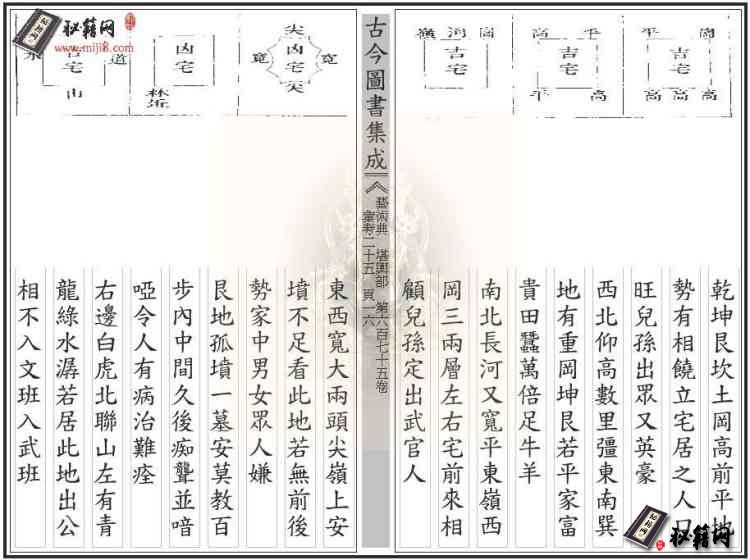 岡 平 高
吉宅
高 高 高
平 高
吉宅
高 平
高 河 嶺
吉宅
古今圖書集成
藝術典 堪輿部 第六百七十五卷
彙考二十五 頁一六
尖
寬 凶宅 寬
尖
凶宅
林
道
吉宅
山
乾坤艮坎土岡高前平地
勢有相饒立宅居之人口
旺兒孫出眾又英豪
西北仰高數里彊東南巽
地有重岡坤艮若平家富
貴田蠶萬倍足牛羊
南北長河又寬平東嶺西
岡三兩層左右宅前來相
顧兒孫定出武官人
東西寬大兩頭尖嶺上安
墳不足看此地若無前後
勢家中男女眾人嫌
艮地孤墳一墓安莫教百
步內中間久後痴聾並喑
啞令人有病治難痊
右邊白虎北聯山左有青
龍綠水潺若居此地出公
相不入文班入武班
秘籍网
www.miji8.com
秘籍网